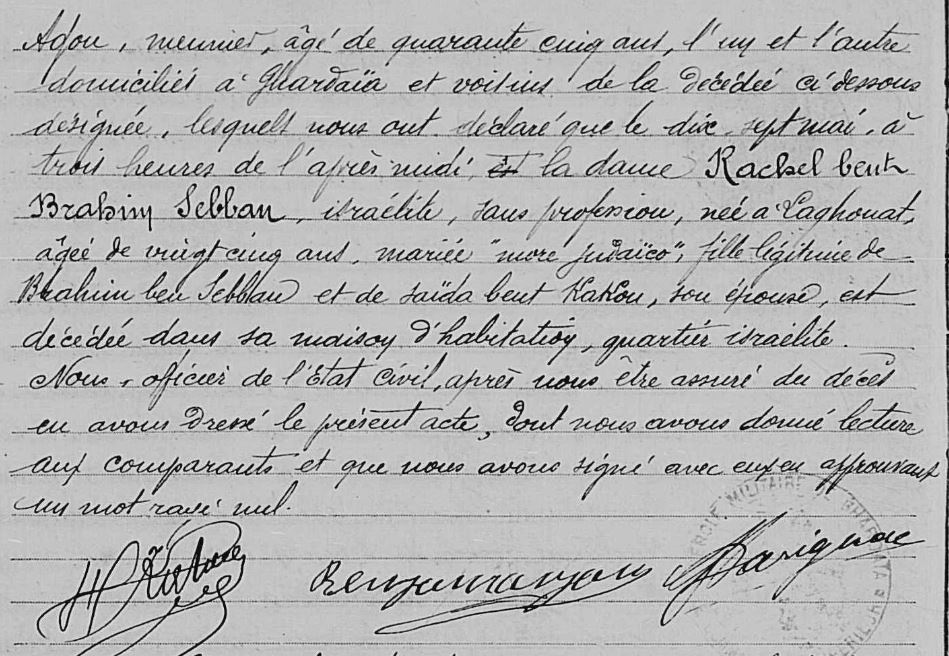 Adou, meunier, âgé de quarante cinq ans, l'un et l'autre
domiciliés à Ghardaïa et voisins de la décédée ci dessous
désignée, lesquels nous ont déclaré que le dix sept mai, à
trois heures de l'après midi, est la dame Rachel bent
Brahim Sebban, israélite, sans profession, née à Laghouat,
âgée de vingt cinq ans, mariée "more judaïco", fille légitime de
Brahim ben Sebban et de Saïda bent Kakou, son épouse, est
décédée dans sa maison d'habitation, quartier israélite.
Nous, officier de l'État Civil, après nous être assuré du décès
en avons dressé le présent acte, dont nous avons donné lecture
aux comparants et que nous avons signé avec eux en approuvant
un mot rayé nul.